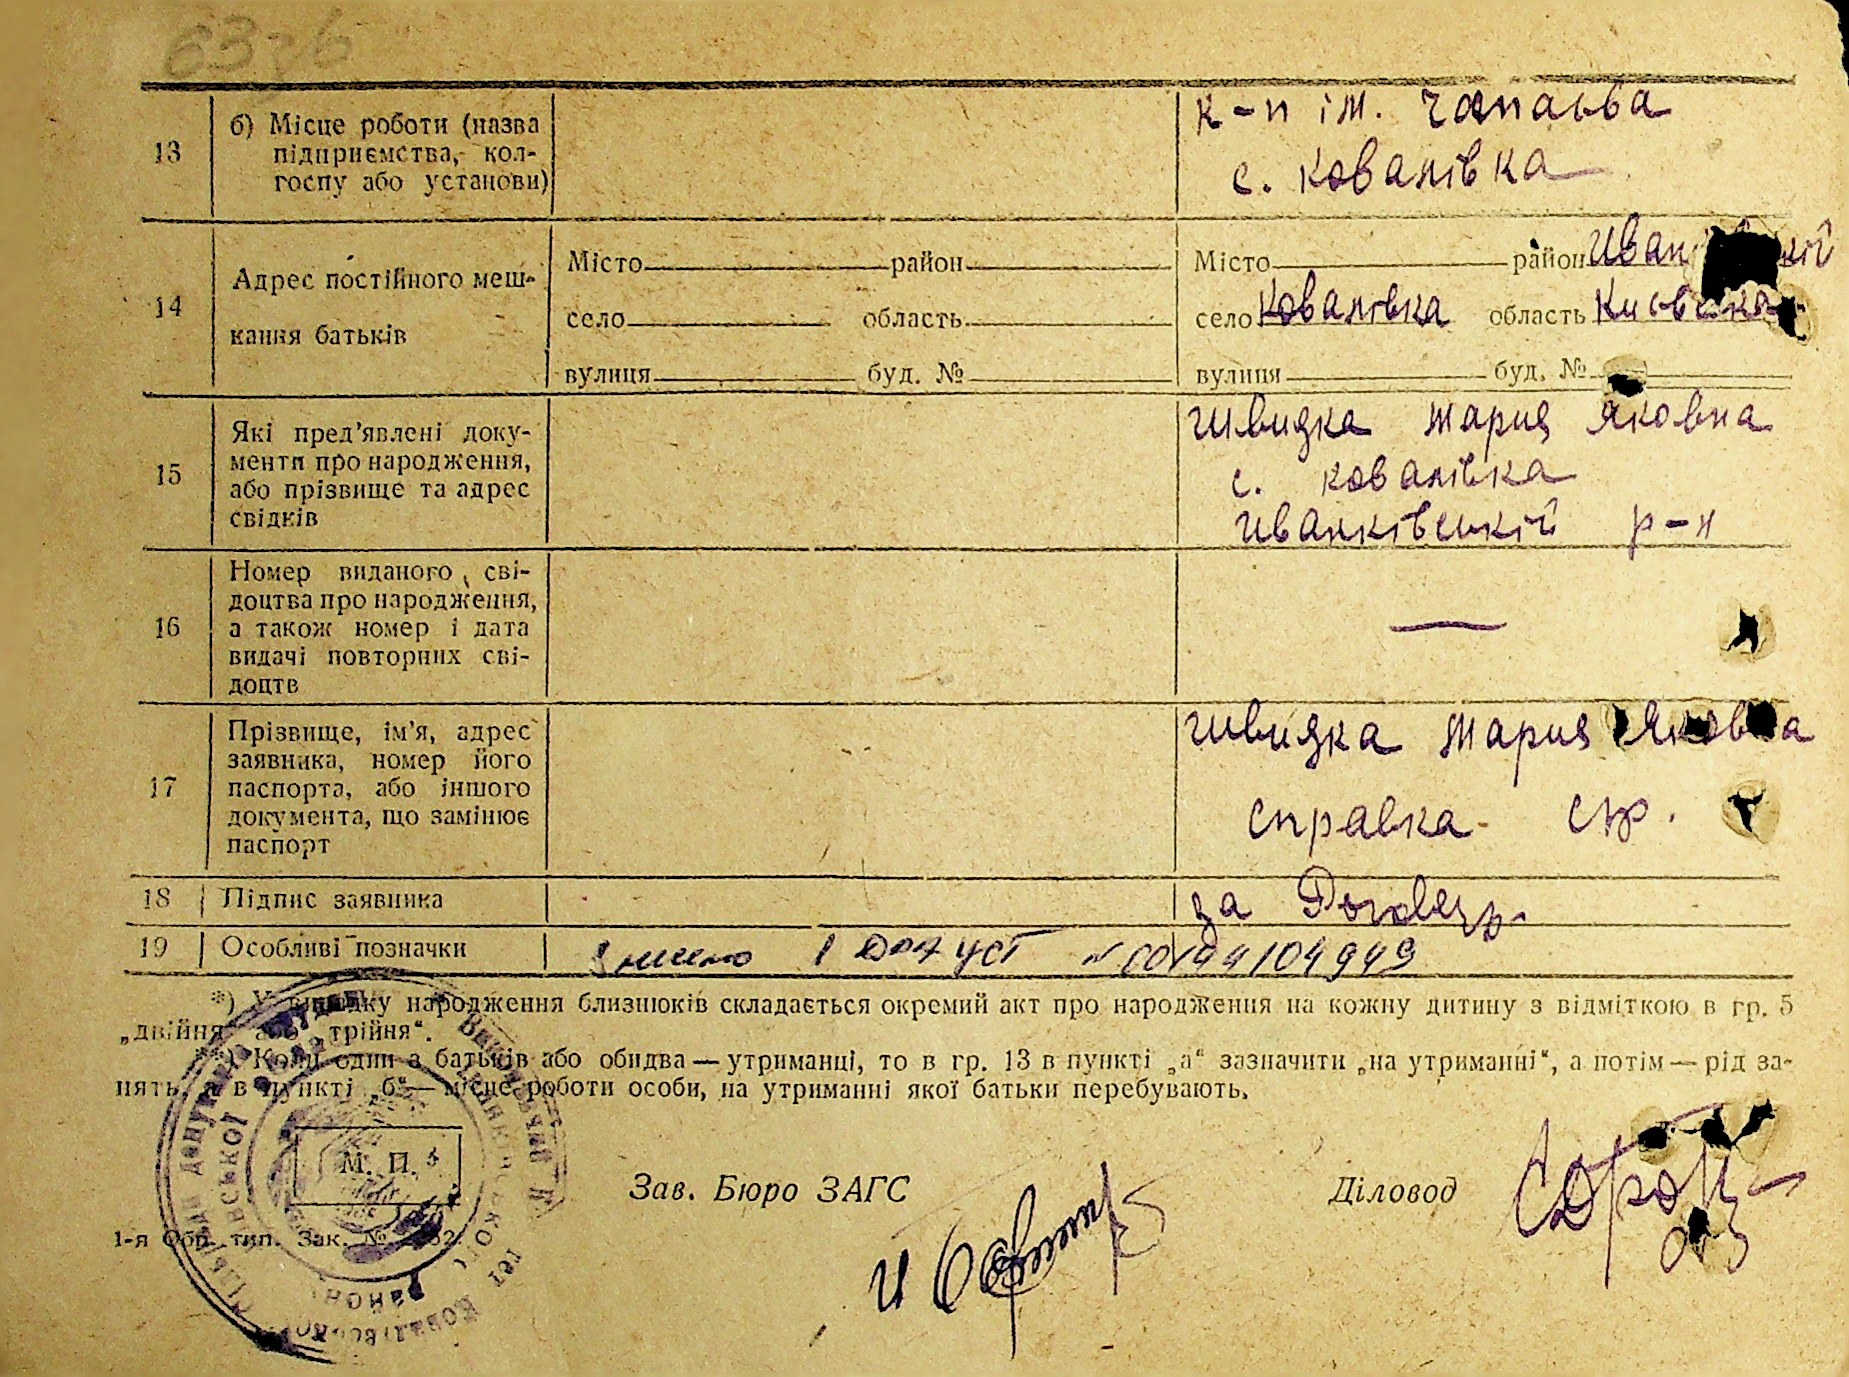 13
б) Місце роботи (назва
підприємства, кол-
госпу або установи)
к-п ім. Чапаєва
с. Ковалівка
14
Адрес постійного меш-
кання батьків
Місто район
село область
вулиця буд. №
Місто район
село Ковалівка область Київська
вулиця буд. №
15
Які пред'явлені доку-
менти про народження,
або прізвище та адрес
свідків
Швидка Мария Яковна
с. Ковалівка
Иванківський р-н
16
Номер виданого сві-
доцтва про народження,
а також номер і дата
видачі повторних сві-
доцтв
17
Прізвище, ім'я, адрес
заявника, номер його
паспорта, або іншого
документа, що замінює
паспорт
Швидка Мария
справка
18 Підпис заявника
за
19 Особливі позначки
*) У випадку народження близнюків складається окремий акт про народження на кожну дитину з відміткою в гр. 5
„двійня“ або „трійня“.
**) Коли один з батьків або обидва — утриманці, то в гр. 13 в пункті „а“ зазначити „на утриманні“, а потім — рід за-
нять, а в пункті „б“ — місце роботи особи, на утриманні якої батьки перебувають.
М. П.
Зав. Бюро ЗАГС
Діловод
1-я Обр. тип. Зак. №